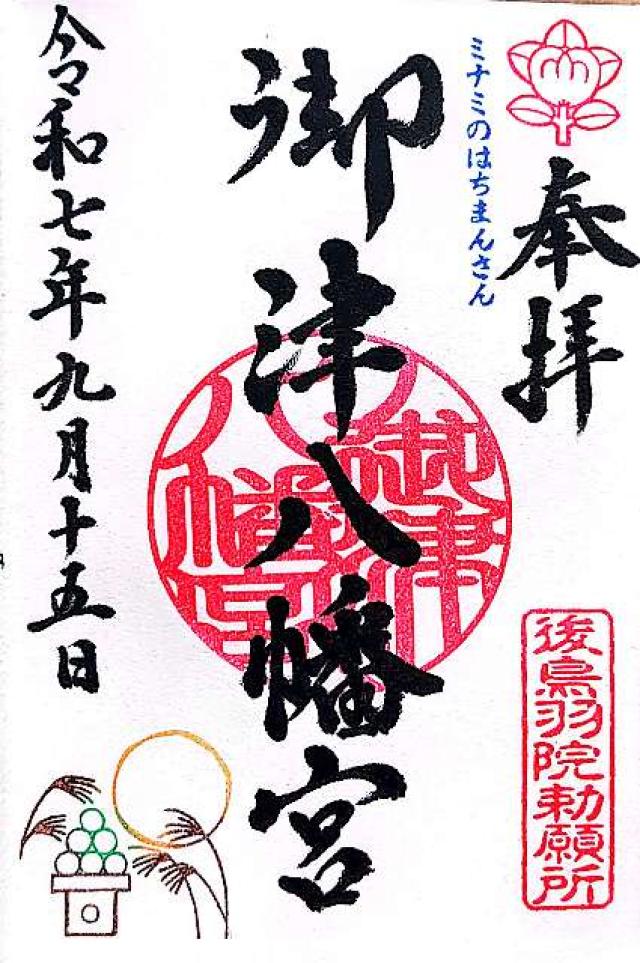 奉拝
ミナミのはちまんさん
御津八幡宮
御津八幡宮
後鳥羽院勅願所
令和七年九月十五日